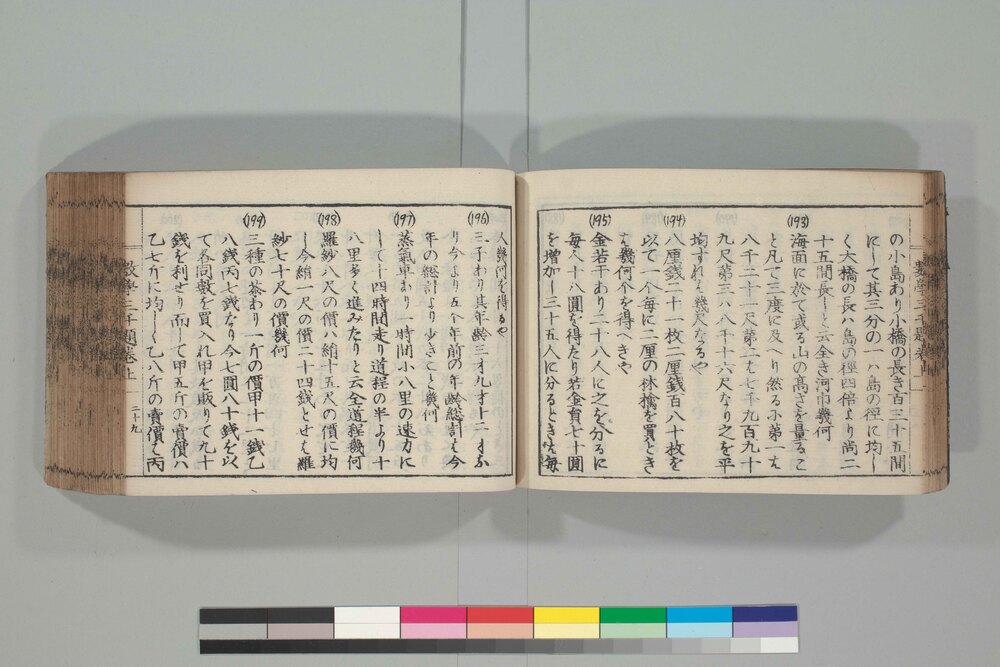 の小島あり小橋の長さ百三十五間
にして其三分の一ハ島の徑に均し
く大橋の長ハ島の徑四倍より尚二
十五間長しと云全き河巾幾何
(193)
海面に於て或る山の高さを量るこ
と凡て三度に及へり然るに第一は
八千二十一尺第二は七千九百九十
九尺第三ハ八千十六尺なり之を平
均すれは幾尺なるや
(194)
八厘錢二十一枚二厘錢百八十枚を
以て一个毎に二厘の林檎を買ときは
幾何个を得へきや
(195)
金若干あり二十八人に之を分るに
毎人十八圓を得たり若金員七十圓
を増加し三十五人に分るときは毎
人幾何を得るや
(196)
三子あり其年齢三才九才十二才な
り今より五个年前の年齢総計は今
年の総計より少きこと幾何
(197)
蒸氣車あり一時間小八里の速力に
して十四時間走り道程の半より十
八里多く進みたりと云全道程幾何
(198)
羅紗八尺の價ハ絹十五尺の價に均
し今絹一尺の價二十四錢とせは羅
紗七十尺の價幾何
(199)
三種の茶あり一斤の價甲十一錢乙
八錢丙七錢なり今七圓八十錢を以
て各同數を買入れ甲を販りて九十
錢を利せり而して甲五斤の賣價ハ
乙七斤に均しく乙八斤の賣價と丙
數學三千題卷上
二十九